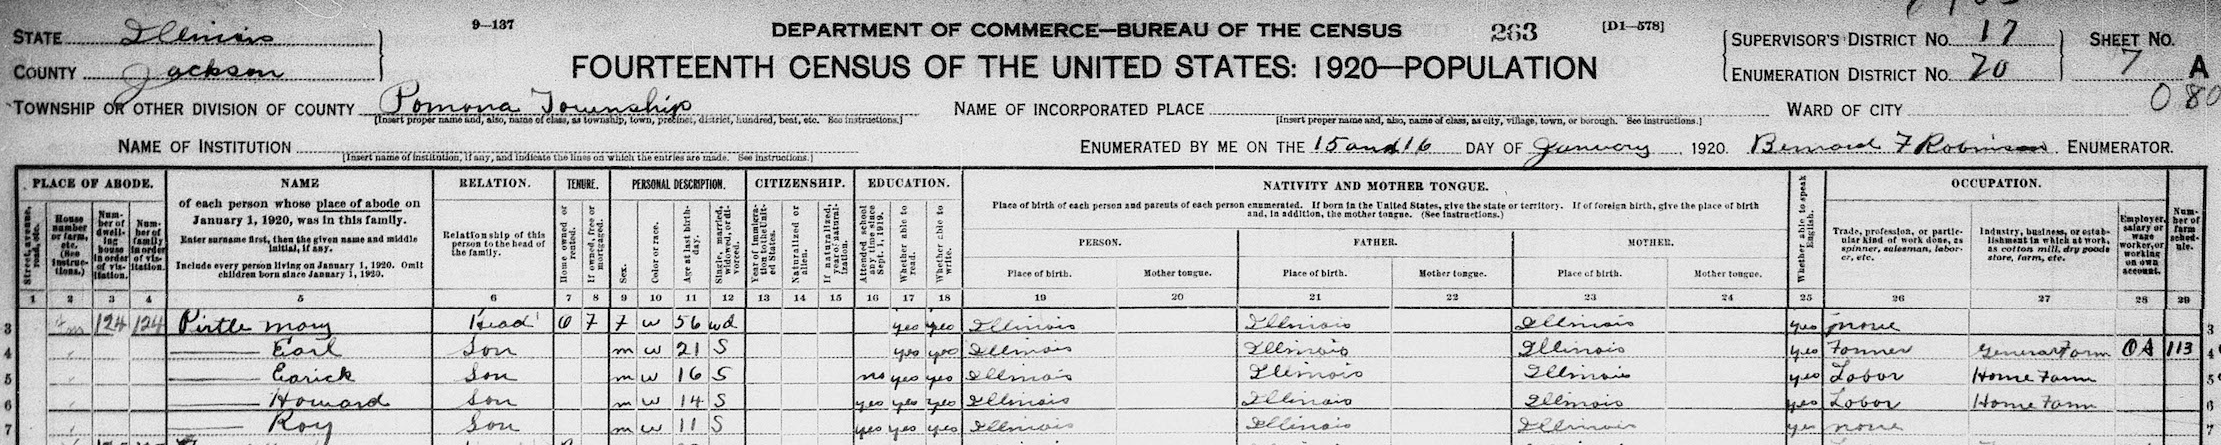 9—137
DEPARTMENT OF COMMERCE—BUREAU OF THE CENSUS
263
[D1—578]
STATE Illinois
COUNTY Jackson
FOURTEENTH CENSUS OF THE UNITED STATES: 1920—POPULATION
SUPERVISOR'S DISTRICT NO. 17
ENUMERATION DISTRICT NO. 70
SHEET NO.
7 A
080
TOWNSHIP OR OTHER DIVISION OF COUNTY Pomona Township
[Insert proper name and, also, name of class, as township, town, precinct, district, hundred, beat, etc. See instructions.]
NAME OF INCORPORATED PLACE
[Insert proper name and, also, name of class, as city, village, town, or borough. See instructions.]
WARD OF CITY
NAME OF INSTITUTION
[Insert name of institution, if any, and indicate the lines on which the entries are made. See instructions.]
ENUMERATED BY ME ON THE 15 and 16 DAY OF January 1920. Bernard F Robinson ENUMERATOR.
PLACE OF ABODE.
Street, avenue, road, etc.
House number or farm, etc. (See instructions.)
Number of dwelling house in order of visitation.
Number of family in order of visitation.
NAME
of each person whose place of abode on
January 1, 1920, was in this family.
Enter surname first, then the given name and middle
initial, if any.
Include every person living on January 1, 1920. Omit
children born since January 1, 1920.
RELATION.
Relationship of this
person to the head of
the family.
TENURE.
Home owned or rented.
If owned, free or mortgaged.
PERSONAL DESCRIPTION.
Sex.
Color or race.
Age at last birthday.
Single, married, widowed, or divorced.
CITIZENSHIP.
Year of immigration to the United States.
Naturalized or alien.
If naturalized, year of naturalization.
EDUCATION.
Attended school any time since Sept. 1, 1919.
Whether able to read.
Whether able to write.
NATIVITY AND MOTHER TONGUE.
Place of birth of each person and parents of each person enumerated. If born in the United States, give the state or territory. If of foreign birth, give the place of birth
and, in addition, the mother tongue. (See instructions.)
PERSON.
FATHER.
MOTHER.
Place of birth. Mother tongue. Place of birth. Mother tongue. Place of birth. Mother tongue.
Whether able to speak English.
OCCUPATION.
Trade, profession, or particular kind of work done, as spinner, salesman, laborer, etc.
Industry, business, or establishment in which at work, as cotton mill, dry goods store, farm, etc.
Employer, salary or wage worker, or working on own account.
Number of farm schedule.
1 2 3 4 5 6 7 8 9 10 11 12 13 14 15 16 17 18 19 20 21 22 23 24 25 26 27 28 29
3 Fm 124 124 Pirtle Mary Head O F F W 56 wd yes yes Illinois Illinois Illinois yes none 3
4 Earl Son m w 21 S yes yes Illinois Illinois Illinois yes Farmer General Farm OA 113 4
5 Earick Son m w 16 S no yes yes Illinois Illinois Illinois yes Labor Home Farm 5
6 Howard Son m w 14 S yes yes yes Illinois Illinois Illinois yes Labor Home Farm 6
7 Roy Son m w 11 S yes yes yes Illinois Illinois Illinois yes none 7